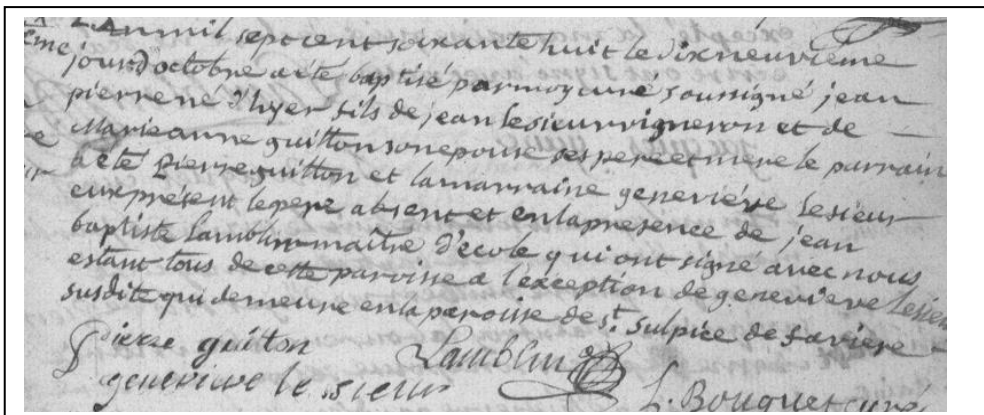 L'an mil sept cent soixante huit le dixneuvieme
jour d'octobre a été baptisé par moy curé soussigné jean
pierre né d'hyer fils de jean lesieur vigneron et de
Marie anne guitton son epouse ses pere et mere le parrain
a eté Pierre guitton et la marraine geneviéve lesieur
eux présent le pere absent et en la presence de jean
baptiste Lamblin maître d'ecole qui ont signé avec nous
estant tous de cette paroisse a l'exception de genevieve lesieur
susdite qui demeure en la paroisse de st. sulpice de favière
pierre guitton Lamblin
genevieve le sieur L. Bouquet curé